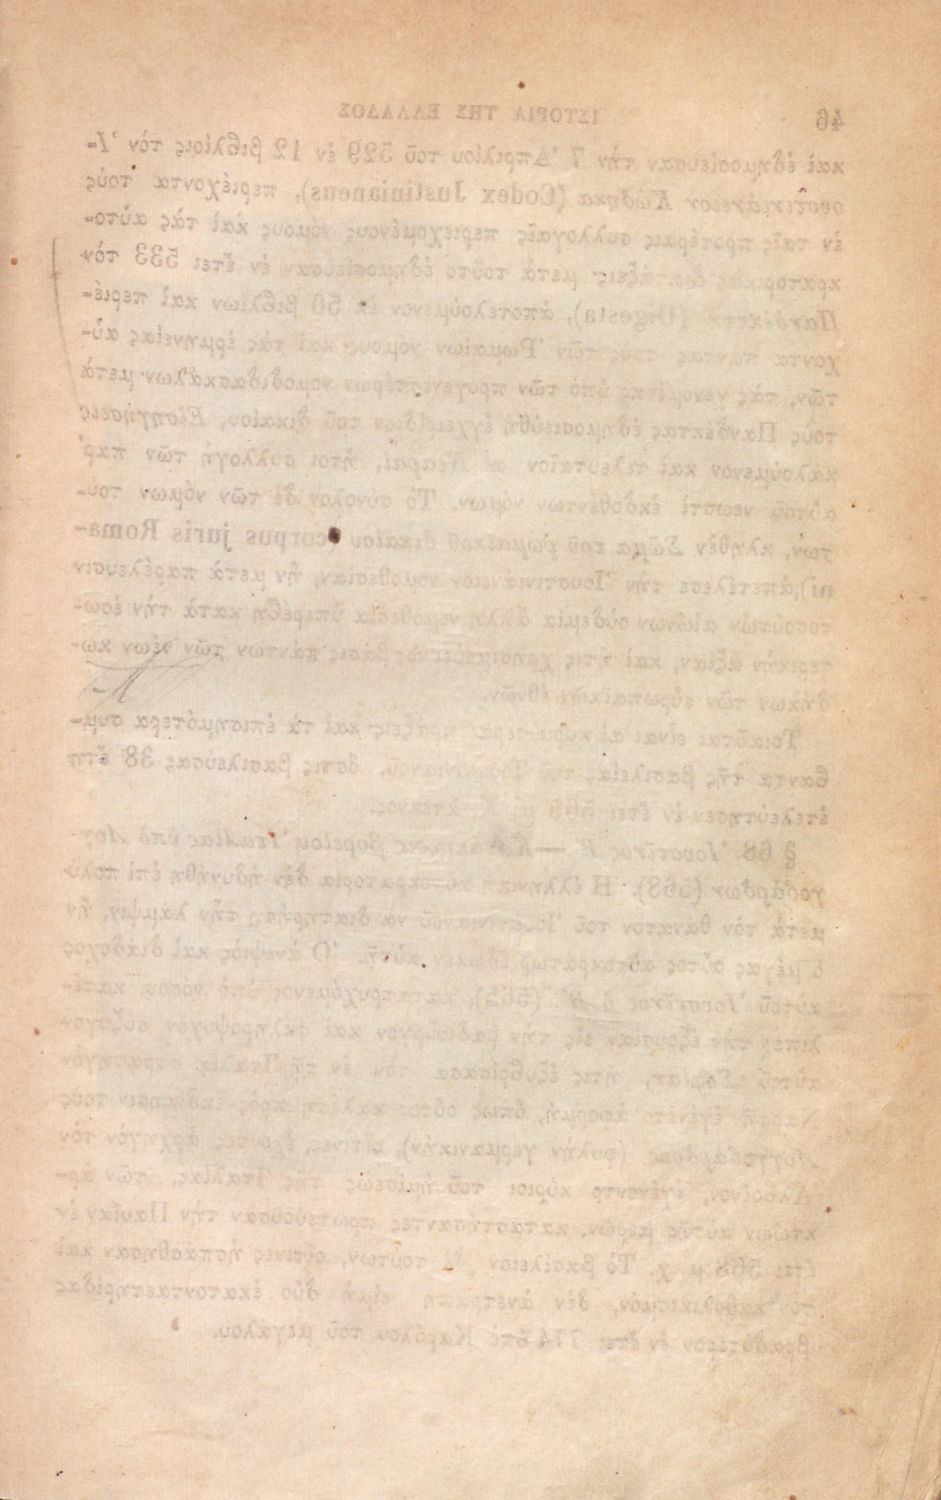 46 ΙΣΤΟΡΙΑ ΤΗΣ ΕΛΛΑΔΟΣ
καὶ ἐδημοσίευσαν τὴν 7 Ἀπριλίου τοῦ 529 ἐν 12 βιβλίοις τὸν Ἰ-
ουστινιάνειον Κώδηκα (Codex Justinianeus), περιέχοντα τοὺς
ἐν ταῖς προτέραις συλλογαῖς περιεχομένους νόμους καὶ τὰς αὐτο-
κρατορικὰς διατάξεις· μετὰ τοῦτο ἐδημοσίευσαν ἐν ἔτει 533 τὸν
Πανδέκτην (Digesta), ἀποτελούμενον ἐκ 50 βιβλίων καὶ περιέ-
χοντα πάντας τοὺς τῶν Ῥωμαίων νόμους καὶ τὰς ἑρμηνείας αὐ-
τῶν, τὰς γενομένας ὑπὸ τῶν προγενεστέρων νομοδιδασκάλων· μετὰ
τοὺς Πανδέκτας ἐδημοσιεύθη ἐγχειρίδιον τοῦ δικαίου, Εἰσηγήσεις
καλούμενον καὶ τελευταῖον αἱ Νεαραί, ἤτοι συλλογὴ τῶν παρ'
αὐτοῦ νεωστὶ ἐκδοθέντων νόμων. Τὸ σύνολον δὲ τῶν νόμων τού-
των, κληθὲν Σῶμα τοῦ ῥωμαϊκοῦ δικαίου (corpus juris Roma-
ni), ἀπετέλεσε τὴν Ἰουστινιάνειον νομοθεσίαν, ἣν μετὰ παρέλευσιν
τοσούτων αἰώνων οὐδεμία ἄλλη νομοθεσία ὑπερέβη κατὰ τὴν ἐσω-
τερικὴν ἀξίαν, καὶ ἥτις χρησιμεύει ὡς βάσις πάντων τῶν νέων κω-
δήκων τῶν εὐρωπαϊκῶν ἐθνῶν.
Τοιαῦται εἶναι αἱ κυριώτεραι πράξεις καὶ τὰ ἐπισημότερα συμ-
βάντα τῆς βασιλείας τοῦ Ἰουστινιανοῦ, ὅστις βασιλεύσας 38 ἔτη
ἐτελεύτησεν ἐν ἔτει 565 μ. Χ. ἄτεκνος.
§ 68. Ἰουστῖνος Β'.—Κατάκτησις βορείου Ἰταλίας ὑπὸ Λογ-
γοβάρδων (568). Ἡ ἑλληνικὴ αὐτοκρατορία δὲν ἠδυνήθη ἐπὶ πολὺ
μετὰ τὸν θάνατον τοῦ Ἰουστινιανοῦ νὰ διατηρήσῃ τὴν λάμψιν, ἣν
ὁ μέγας οὗτος αὐτοκράτωρ ἔδωκεν αὐτῇ. Ὁ ἀνεψιὸς καὶ διάδοχος
αὐτοῦ Ἰουστῖνος ὁ Β'. (565), κατατρυχόμενος ὑπὸ νόσου, κατέ-
λιπε τὴν ἐξουσίαν εἰς τὴν ῥᾳδιοῦργον καὶ σκληρόψυχον σύζυγον
αὐτοῦ Σοφίαν, ἥτις ἐξυβρίσασα τὸν ἐν τῇ Ἰταλίᾳ στρατηγὸν
Ναρσῆ ἐγένετο ἀφορμή, ὅπως οὗτος καλέσῃ πρὸς ἐκδίκησιν τοὺς
Λογγοβάρδους (φυλὴν γερμανικήν), οἵτινες ἔχοντες ἀρχηγὸν τὸν
Ἀλβοῖνον, ἐγένοντο κύριοι τοῦ ἡμίσεως τῆς Ἰταλίας, τῶν ἀρ-
κτῴων αὐτῆς μερῶν, καταστήσαντες πρωτεύουσαν τὴν Παυΐαν ἐν
ἔτει 568 μ. χ. Τὸ βασίλειον δὲ τούτων, οἵτινες ἠσπάσθησαν καὶ
τὸν καθολικισμόν, δὲν ἀνετράπη εἰμὴ δύο ἑκατονταετηρίδας
βραδύτερον ἐν ἔτει 774 ὑπὸ Καρόλου τοῦ μεγάλου.